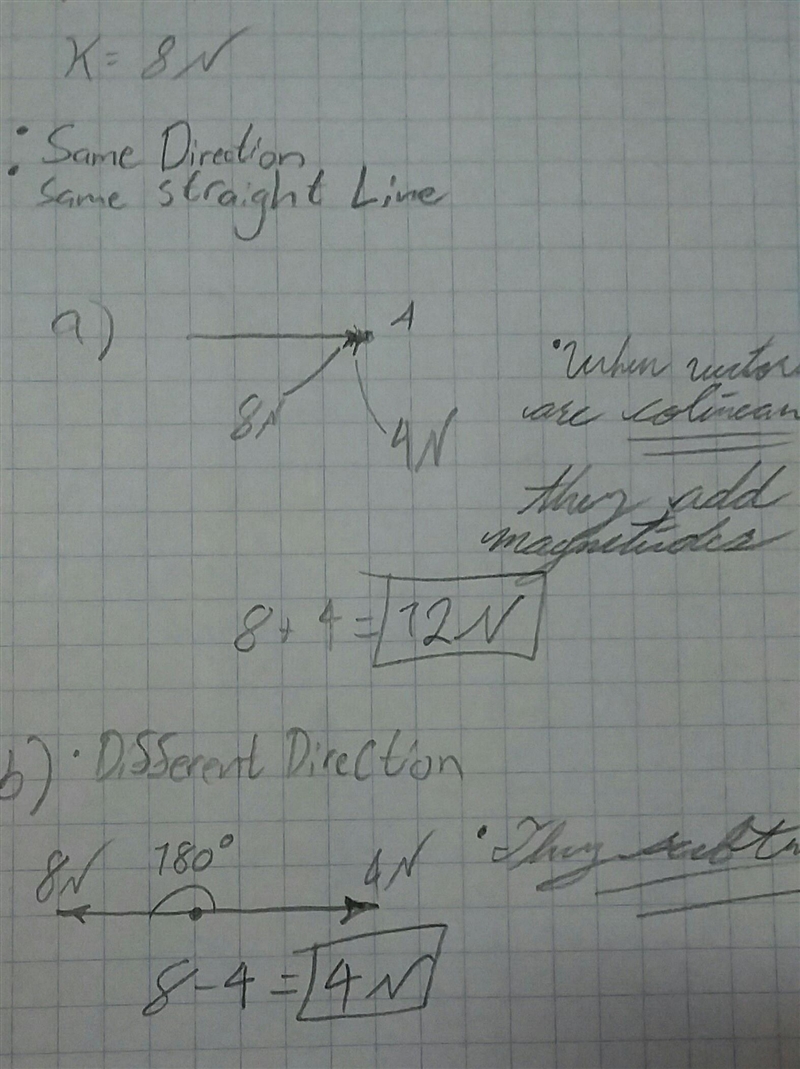 K = 8N
: Same Direction
Same straight Line
a)
A
8N
4N
• When vectors
are colinear
they add
magnetudes
8 + 4 = 12N
b) • Different Direction
8N 180° 4N
• They
8 - 4 = 4N